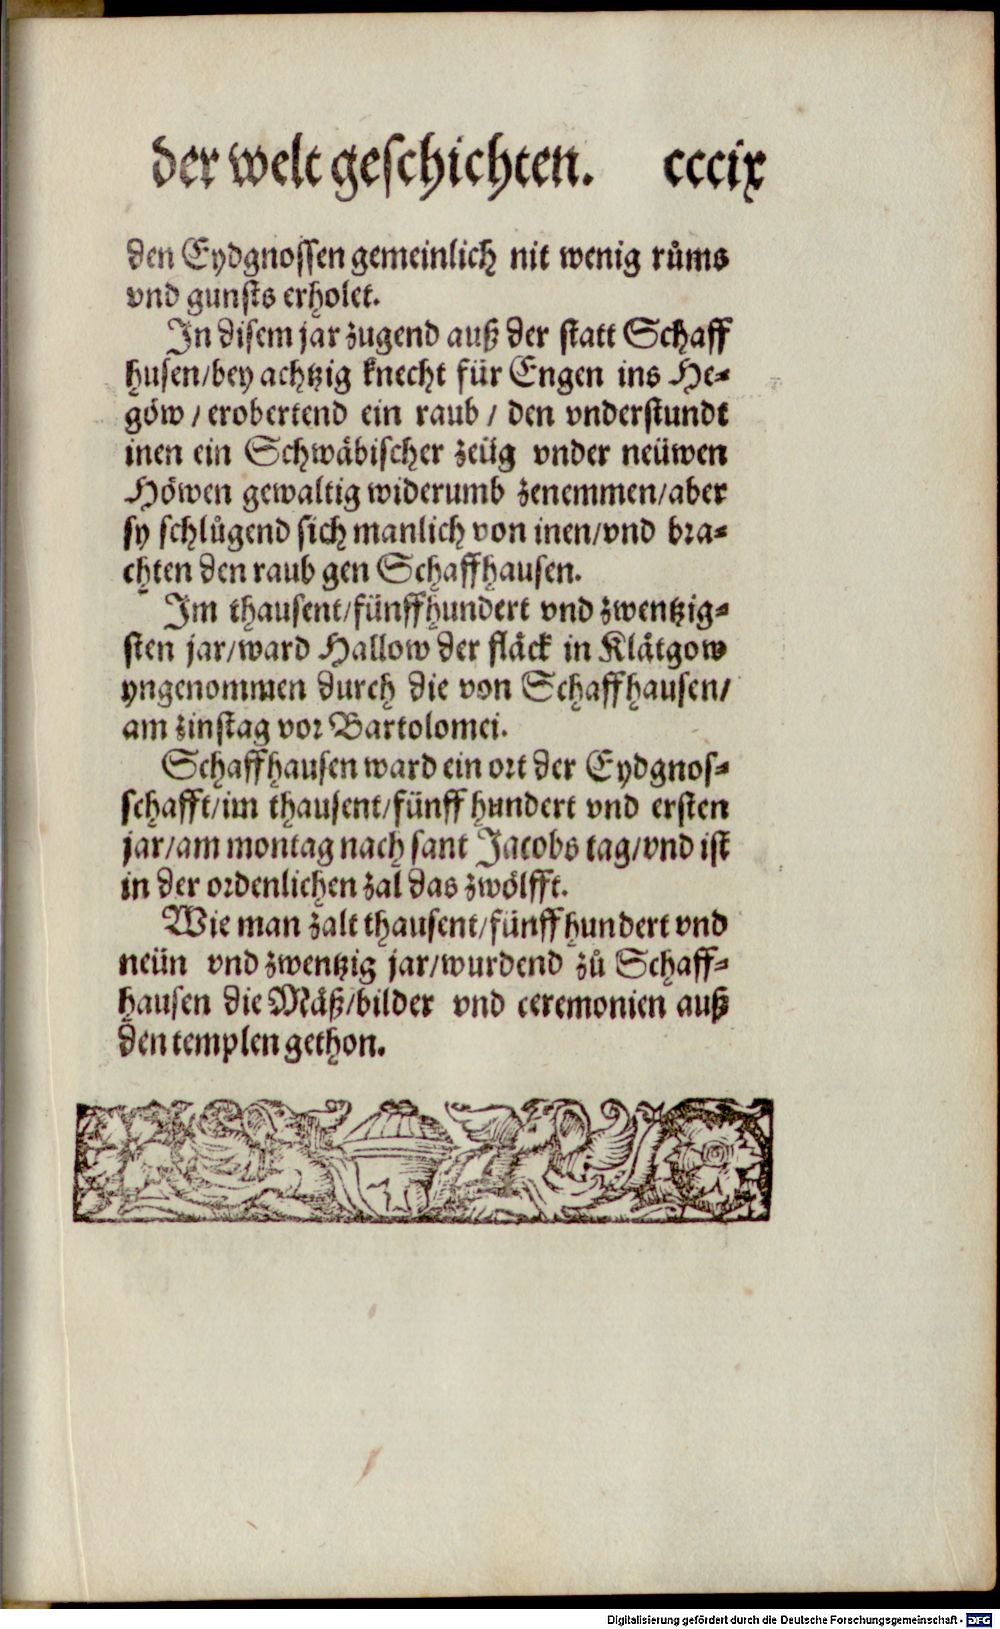 der welt geschichten. cccix
den Eydgnossen gemeinlich nit wenig růms
vnd gunsts erholet.
In disem jar zugend auß der statt Schaff
husen/bey achtzig knecht für Engen ins He-
göw / erobertend ein raub / den vnderstundt
inen ein Schwäbischer zeüg vnder neüwen
Höwen gewaltig widerumb zenemmen/aber
sy schlůgend sich manlich von inen/vnd bra-
chten den raub gen Schaffhausen.
Im thausent/fünffhundert vnd zwentzig-
sten jar/ward Hallow der fläck in Klätgow
yngenommen durch die von Schaffhausen/
am zinstag vor Bartolomei.
Schaffhausen ward ein ort der Eydgnos-
schafft/im thausent/fünff hundert vnd ersten
jar/am montag nach sant Jacobs tag/vnd ist
in der ordenlichen zal das zwölfft.
Wie man zalt thausent/fünff hundert vnd
neün vnd zwentzig jar/wurdend zů Schaff-
hausen die Mäß/bilder vnd ceremonien auß
den templen gethon.
Digitalisierung gefördert durch die Deutsche Forschungsgemeinschaft - DFG